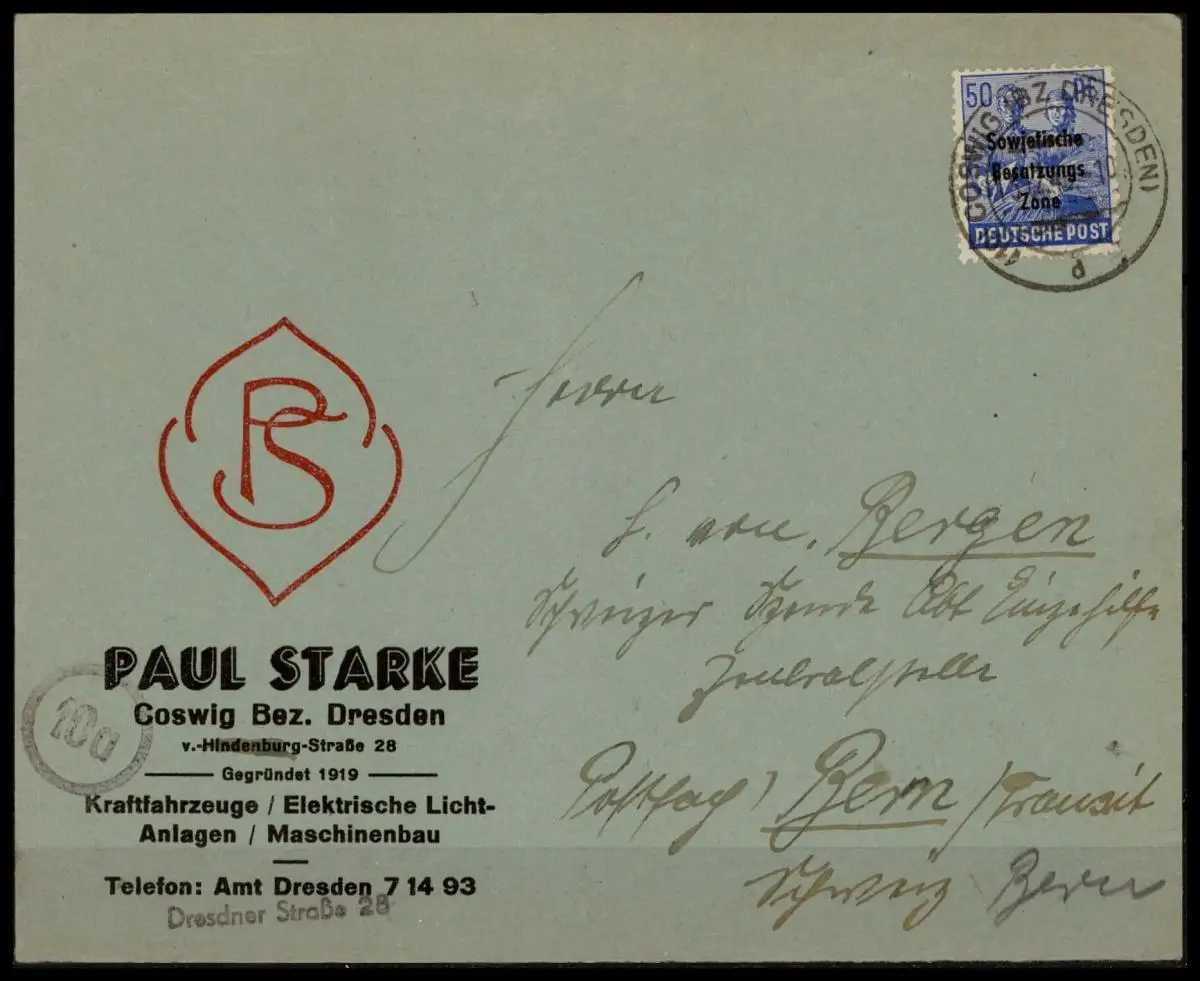 50 Pf
Sowjetische
Besatzungs
Zone
DEUTSCHE POST
COSWIG (BZ DRESDEN)
d
PS
Herrn
von Bergen
Schweizer Spende Abt Einzelhilfe
Zentralstelle
Postfach Bern / Transit
Schweiz Bern
PAUL STARKE
Coswig Bez. Dresden
v.-Hindenburg-Straße 28
Gegründet 1919
10a
Kraftfahrzeuge / Elektrische Licht-
Anlagen / Maschinenbau
Telefon: Amt Dresden 7 14 93
Dresdner Straße 28